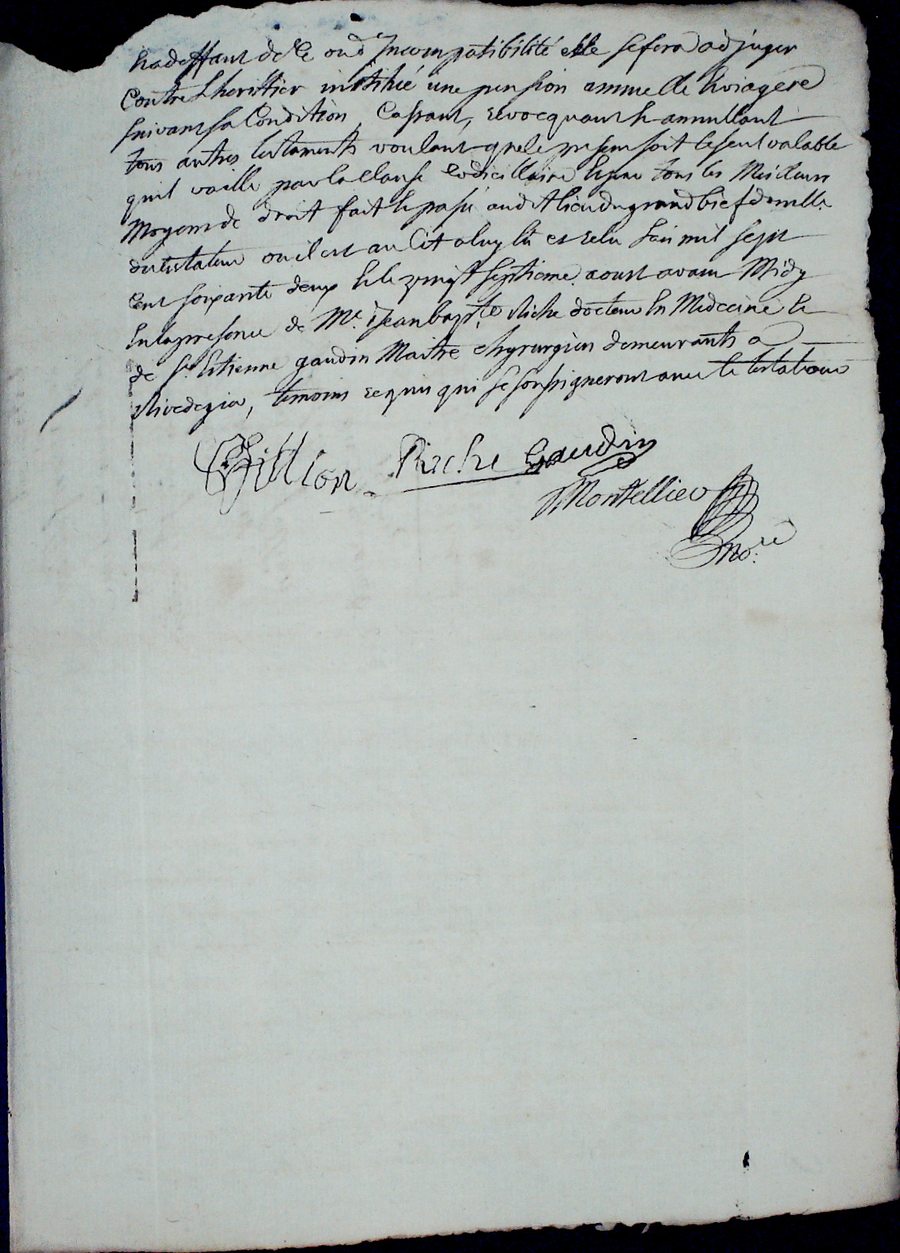 Et a deffaut de ce ou d'Incompatibilité elle se fera adjuger
Contre L'heritier institué une pension annuelle & viagere
suivant sa Condition, Cassant, revocquant & annullant
tous autres testaments voulant que le present soit le seul valable
qu'il vaille par la Clause Codicillaire & par tous les Meilleurs
Moyens de droit fait & passé audit lieu du grand bief domicille
du testateur ou il est au lit l'an mil sept
cent soixante deux & le vingt septieme aoust avant Midy
En la presence de Me. Jean bapte. Riche docteur En Medecine &
de Sr. Etienne gaudin Maitre chyrurgien demeurants a
temoins requis qui se soussigneront avec le testateur
Gillon Riche Gaudin
Montellier
No.re